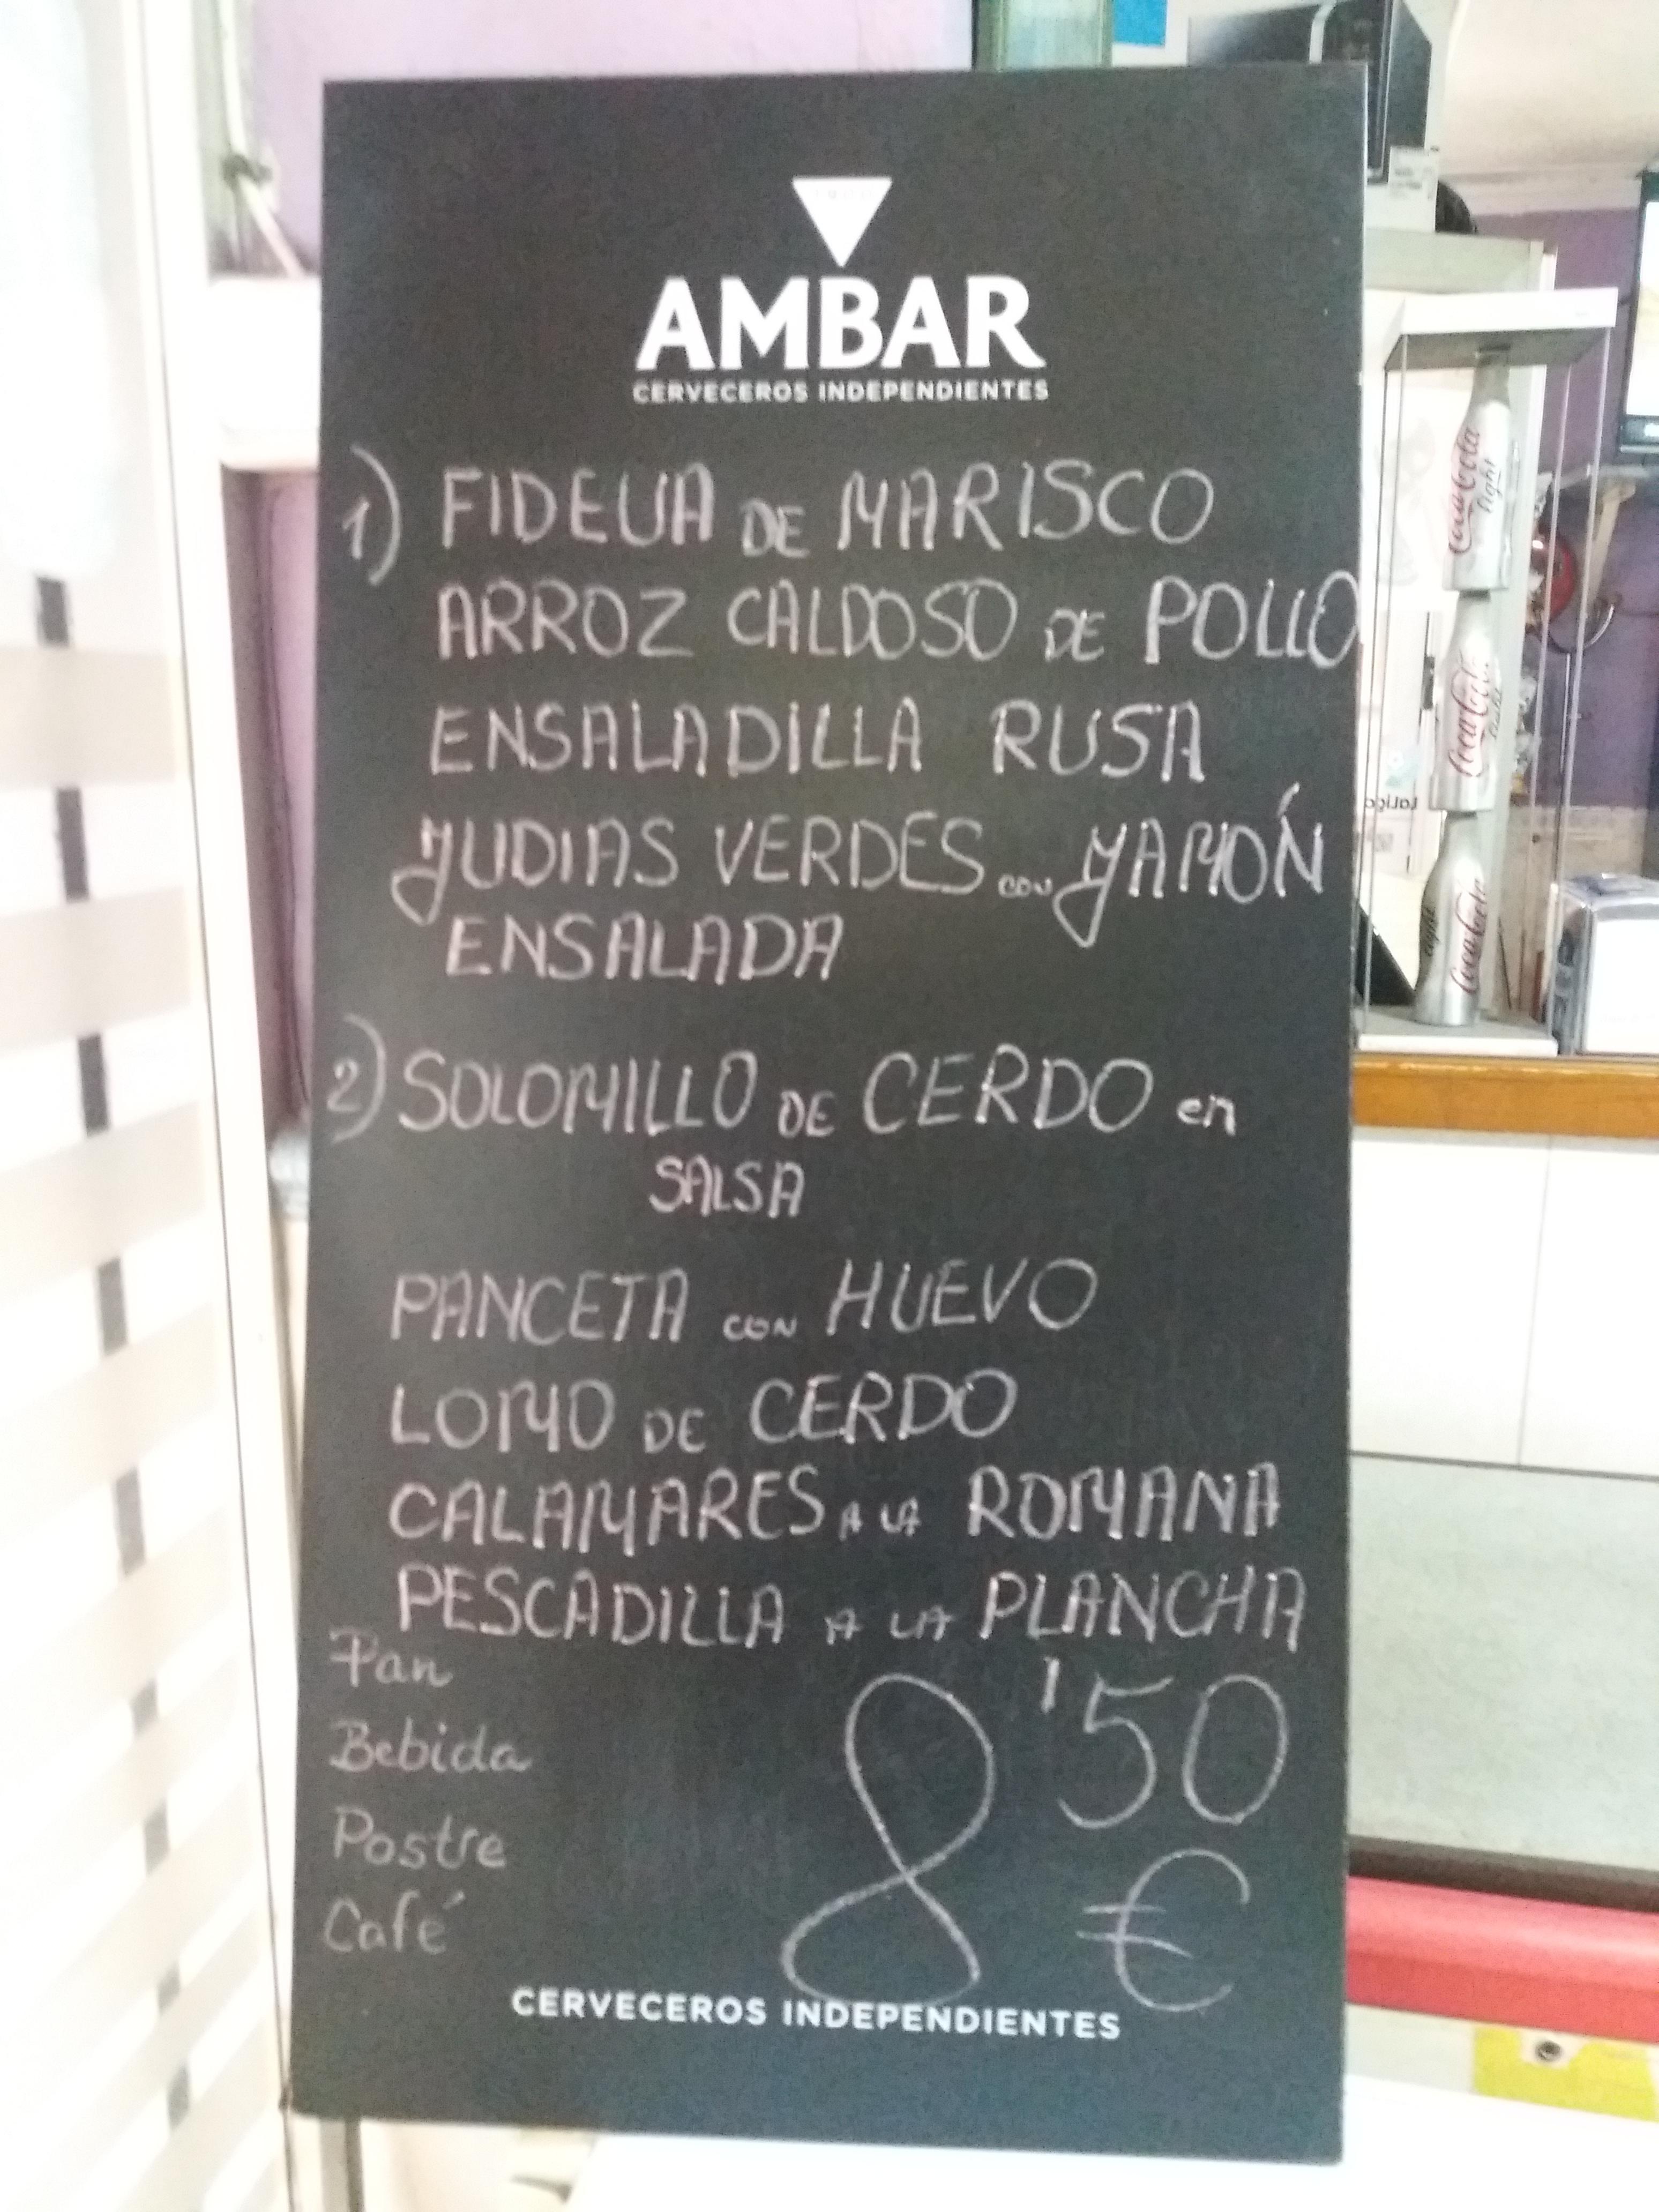 AMBAR
CERVECEROS INDEPENDIENTES
1) FIDEUA DE MARISCO
ARROZ CALDOSO DE POLLO
ENSALADILLA RUSA
JUDIAS VERDES CON JAMÓN
ENSALADA
2) SOLOMILLO DE CERDO en
SALSA
PANCETA CON HUEVO
LOMO DE CERDO
CALAMARES A LA ROMANA
PESCADILLA A LA PLANCHA
Pan
Bebida
Postre
Café
8'50
€
CERVECEROS INDEPENDIENTES
Coca-Cola
light
Coca-Cola
light
Coca-Cola
light
LaLiga